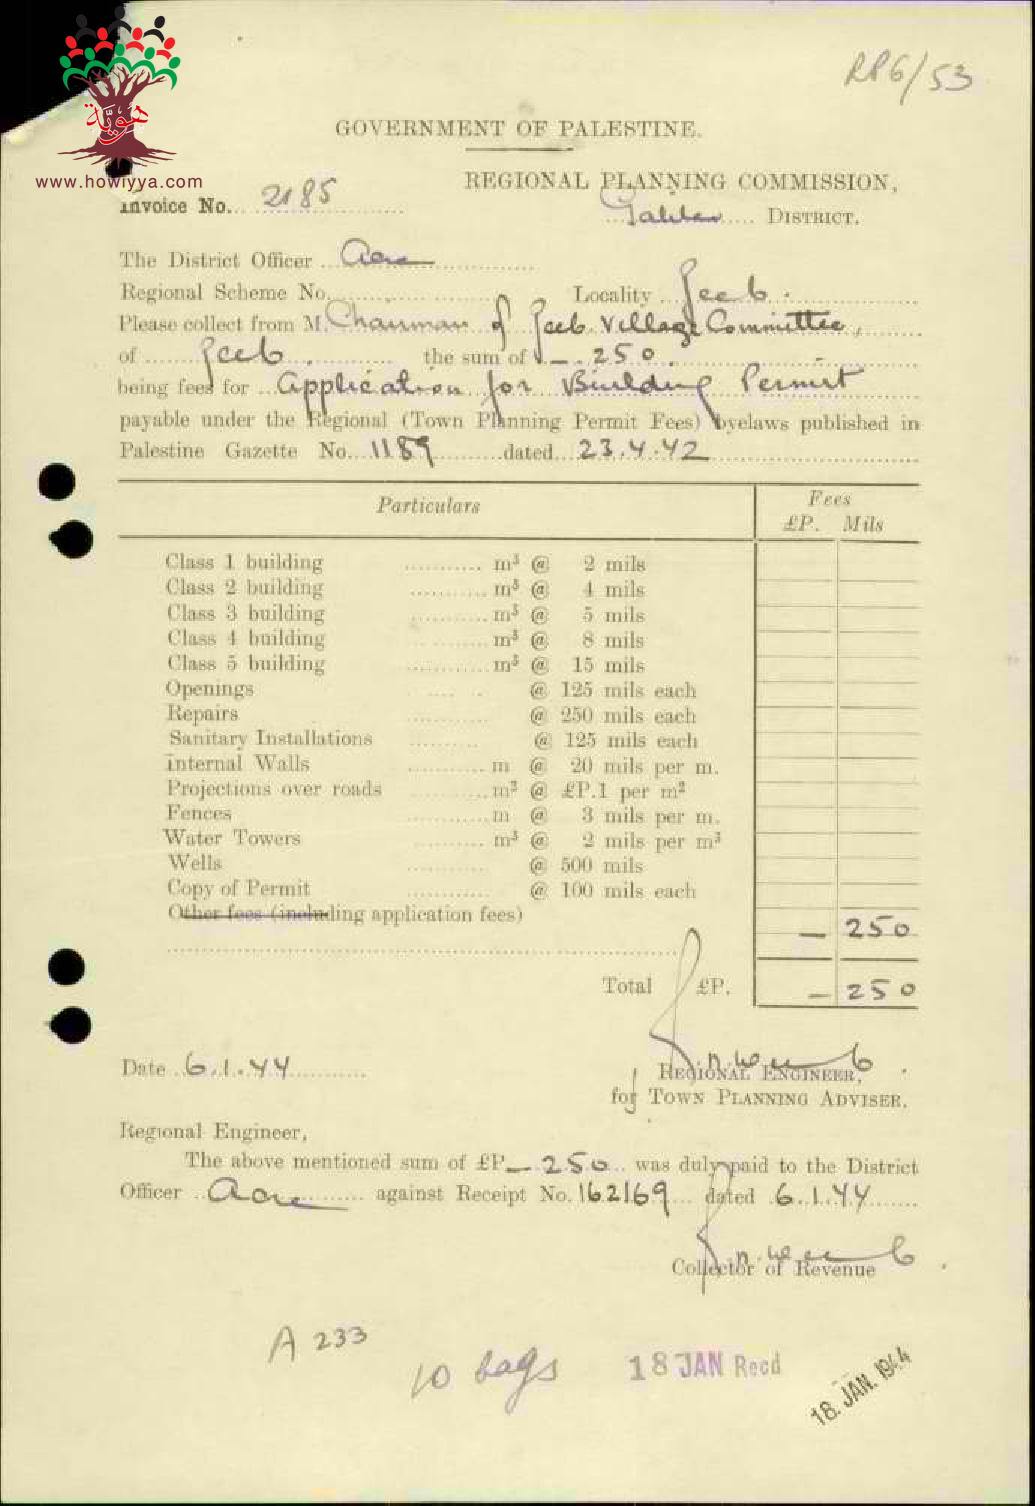 RP6/53
هوية
www.howiyya.com
GOVERNMENT OF PALESTINE.
REGIONAL PLANNING COMMISSION,
Invoice No. 2185
Galilee DISTRICT.
The District Officer Acre
Regional Scheme No. Locality Zeeb.
Please collect from M. Chairman of Zeeb Village Committee,
of Zeeb. the sum of — . 250.
being fees for Application for Building Permit
payable under the Regional (Town Planning Permit Fees) byelaws published in
Palestine Gazette No. 1189 dated 23.4.42
Particulars Fees
£P. Mils
Class 1 building m³ @ 2 mils
Class 2 building m³ @ 4 mils
Class 3 building m³ @ 5 mils
Class 4 building m³ @ 8 mils
Class 5 building m³ @ 15 mils
Openings @ 125 mils each
Repairs @ 250 mils each
Sanitary Installations @ 125 mils each
Internal Walls m @ 20 mils per m.
Projections over roads m² @ £P.1 per m²
Fences m @ 3 mils per m.
Water Towers m³ @ 2 mils per m³
Wells @ 500 mils
Copy of Permit @ 100 mils each
Other fees (including application fees) — 250
Total £P. — 250
Date 6.1.44
REGIONAL ENGINEER,
for TOWN PLANNING ADVISER.
Regional Engineer,
The above mentioned sum of £P — 250 was duly paid to the District
Officer Acre against Receipt No. 162169 dated 6.1.44
Collector of Revenue
A 233
10 bags
18 JAN Recd
18. JAN. 1944